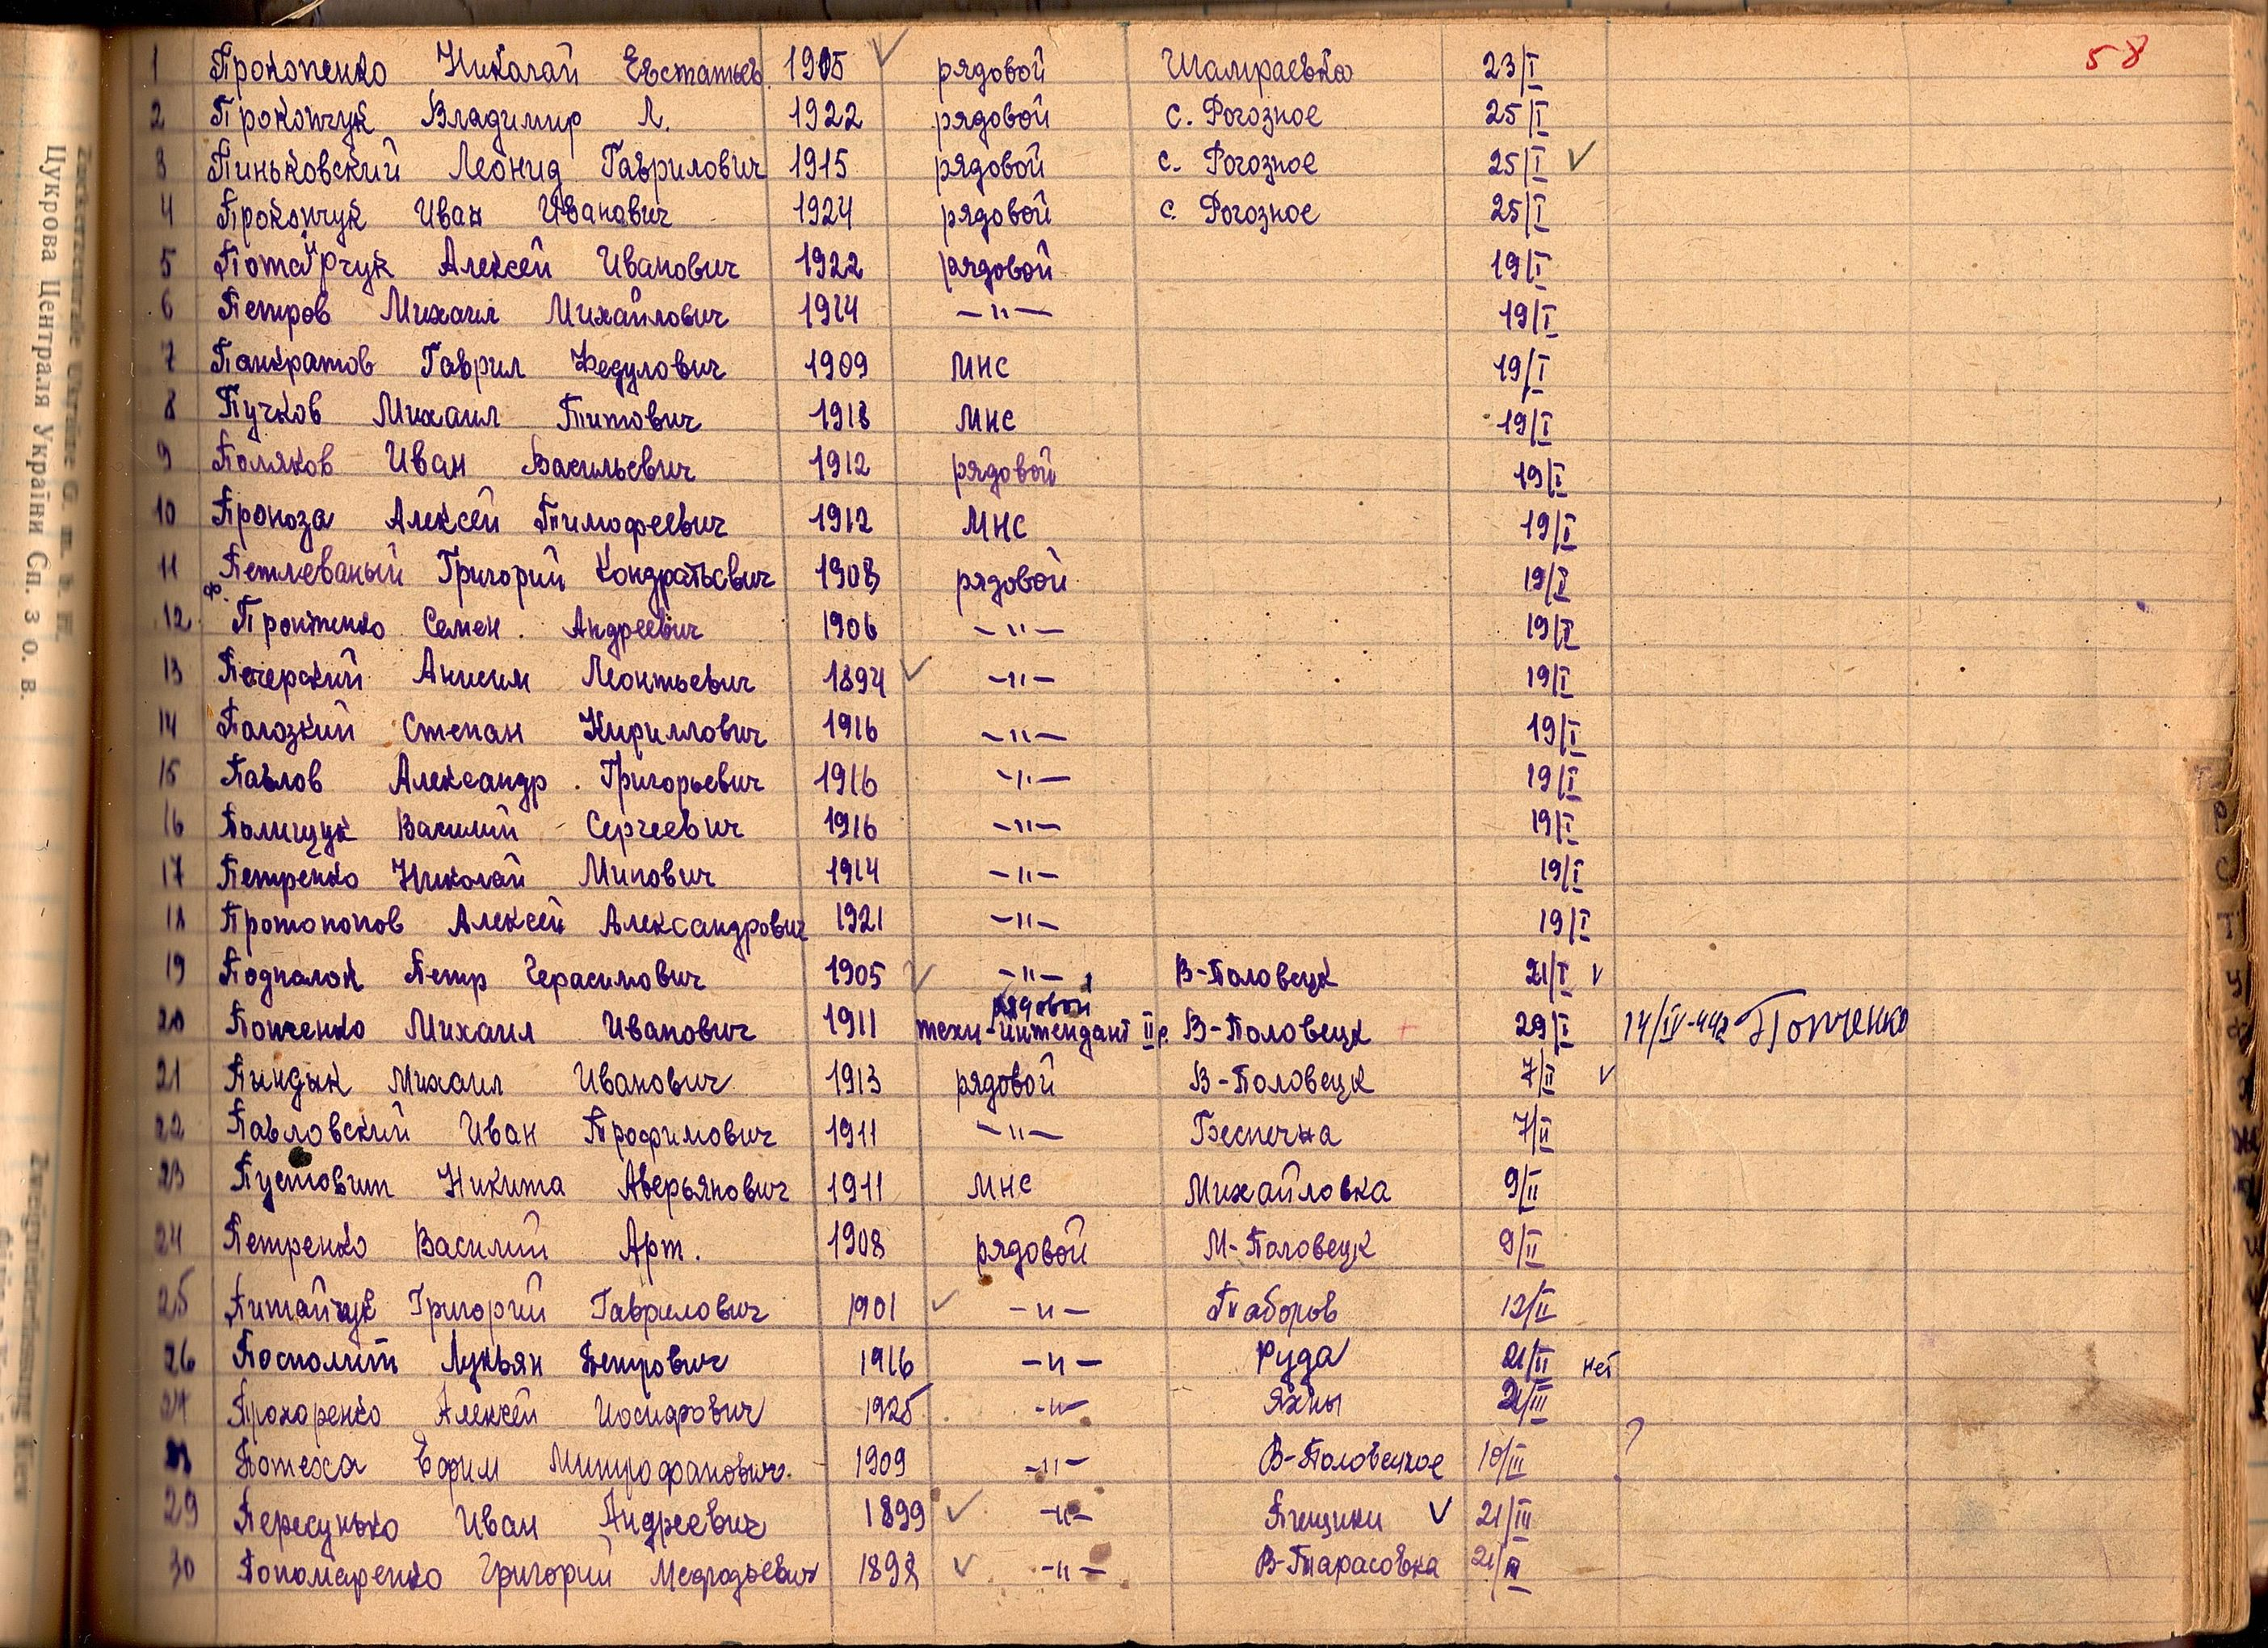 58
1 Прокопенко Николай Евстатьев. 1905 рядовой Шамраевка 23/I
2 Прокопчук Владимир Л. 1922 рядовой с. Рогозное 25/I
3 Пиньковский Леонид Гаврилович 1915 рядовой с. Рогозное 25/I ✓
4 Прокопчук Иван Иванович 1924 рядовой с. Рогозное 25/I
5 Алексей Иванович 1922 рядовой 19/I
6 Петров Михаил Михайлович 1914 —"— 19/I
7 Панкратов Гаврил Федулович 1909 МНС 19/I
8 Пучков Михаил Титович 1918 МНС 19/I
9 Поляков Иван Васильевич 1912 рядовой 19/I
10 Проноза Алексей Тимофеевич 1912 МНС 19/I
11 Петлеваный Григорий Кондратьевич 1908 рядовой 19/I
12 Семен Андреевич 1906 —"— 19/I
13 Печерский Анисим Леонтьевич 1894 ✓ —"— 19/I
14 Полозкий Степан Кириллович 1916 —"— 19/I
15 Павлов Александр Григорьевич 1916 —"— 19/I
16 Полищук Василий Сергеевич 1916 —"— 19/I
17 Петренко Николай Минович 1914 —"— 19/I
18 Протопопов Алексей Александрович 1921 —"— 19/I
19 Подпалок Петр Герасимович 1905 ✓ —"— В-Половецк 21/I ✓
рядовой
20 Попченко Михаил Иванович 1911 техн-интендант II р. В-Половецк 29/I 14/IV-442 Попченко
21 Пиндык Михаил Иванович 1913 рядовой В-Половецк 7/II ✓
22 Павловский Иван Трофимович 1911 —"— Беспечна 7/II
23 Пустовит Никита Аверьянович 1911 МНС Михайловка 9/II
24 Петренко Василий Арт. 1908 рядовой М-Половецк 9/II
25 Питайчук Григорий Гаврилович 1901 ✓ —"— Таборов 12/II
26 Посполит Лукьян Петрович 1916 —"— Руда 21/II нет
27 Прохоренко Алексей Иосифович 1925 —"— Яхны 2/III
Потеха Ефим Митрофанович 1909 —"— В-Половецкое 10/III ?
29 Пересунько Иван Андреевич 1899 ✓ —"— Пищики ✓ 21/III
30 Пономаренко Григорий Мефодьевич 1898 ✓ —"— В-Тарасовка 21/III
Цукрова Централя України Сп. з о. в.
Р
С
Т
У